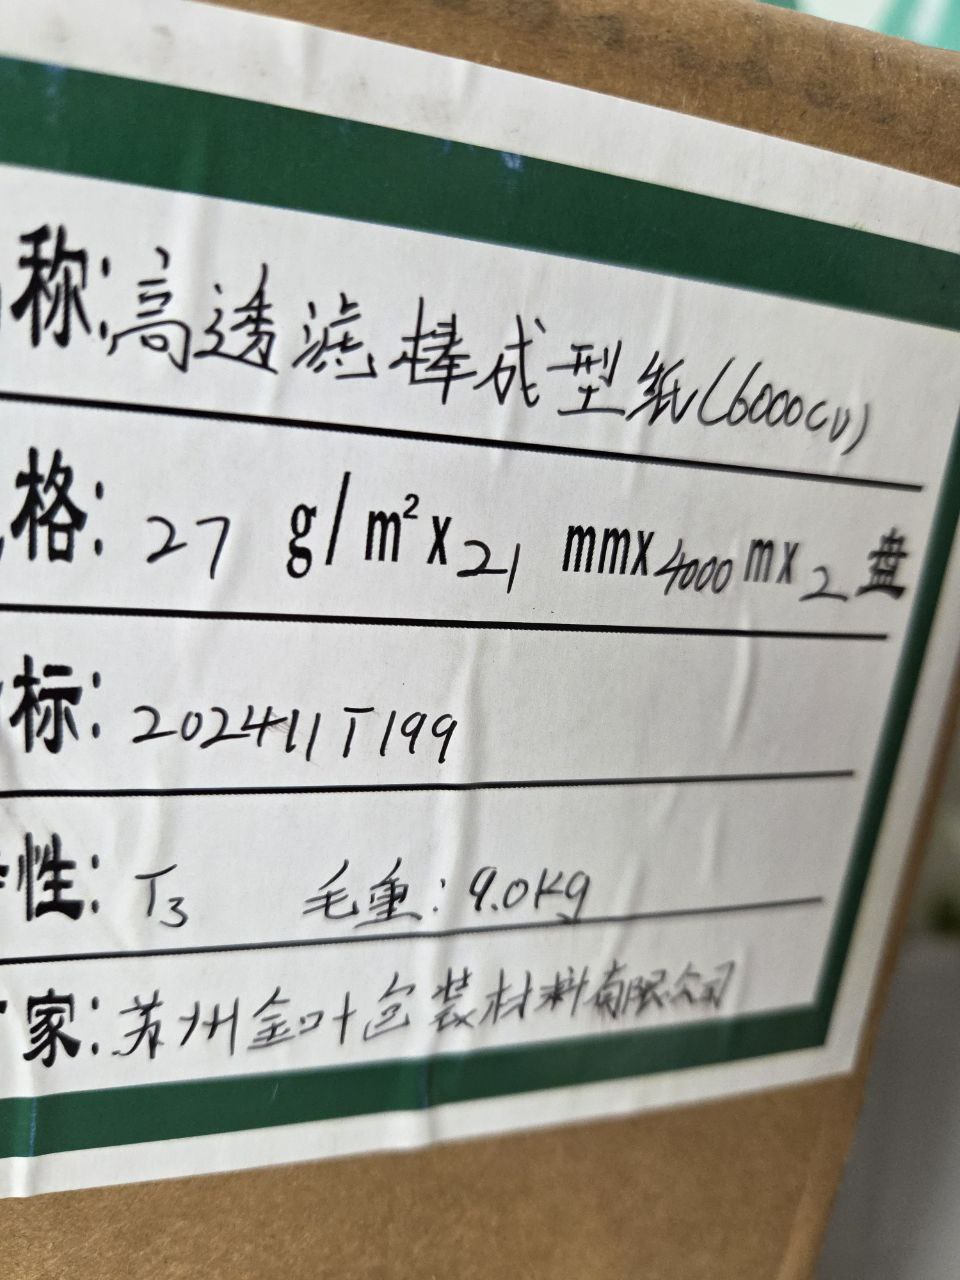 称:高透滤棒成型纸(6000CU)
格:27 g/m²x21 mmx4000mx2盘
标:202411T199
性:T3 毛重:9.0Kg
家:苏州金叶包装材料有限公司